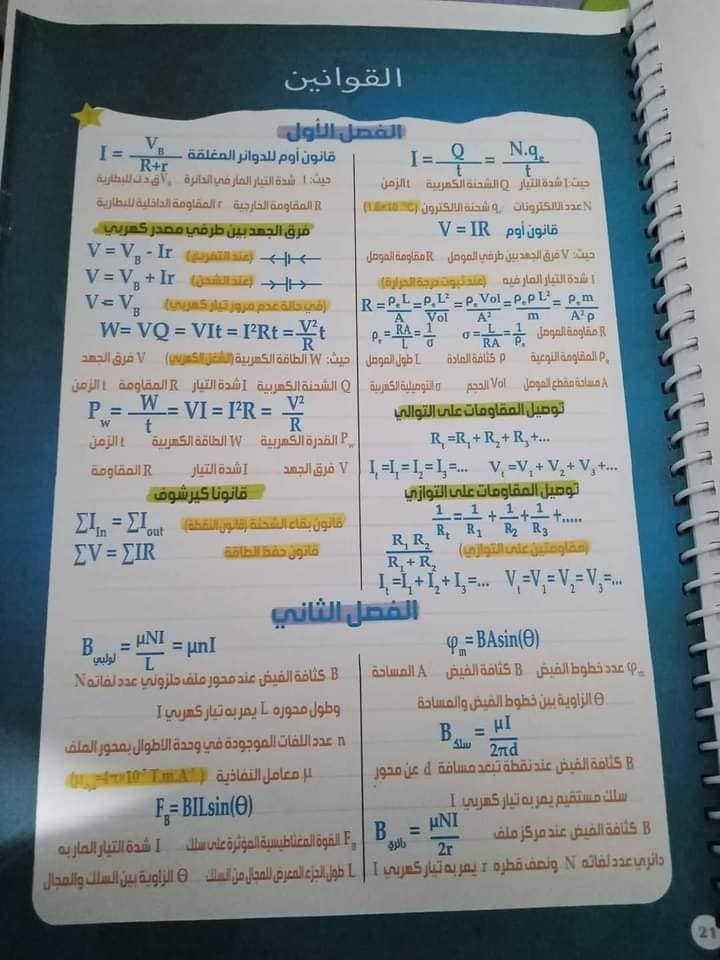 القوانين
الفصل الأول
I = Q/t = N.qₑ/t
حيث: I شدة التيار Q الشحنة الكهربية t الزمن
N عدد الالكترونات qₑ شحنة الالكترون (1.6×10⁻¹⁹C)
قانون أوم V = IR
حيث: V فرق الجهد بين طرفي الموصل R مقاومة الموصل
I شدة التيار المار فيه (عند ثبوت درجة الحرارة)
R = ρₑL/A = ρₑL²/Vol = ρₑVol/A² = ρₑρL²/m = ρₑm/A²ρ
R مقاومة الموصل ρₑ = RA/L = 1/σ σ = L/RA = 1/ρₑ
ρₑ المقاومة النوعية ρ كثافة المادة L طول الموصل
A مساحة مقطع الموصل Vol الحجم σ التوصيلية الكهربية
توصيل المقاومات على التوالي
Rₜ = R₁ + R₂ + R₃ +...
Iₜ = I₁ = I₂ = I₃ =... Vₜ = V₁ + V₂ + V₃ +...
توصيل المقاومات على التوازي
1/Rₜ = 1/R₁ + 1/R₂ + 1/R₃ +.....
R₁ R₂/R₁ + R₂ (مقاومتين على التوازي)
Iₜ = I₁ + I₂ + I₃ =... Vₜ = V₁ = V₂ = V₃ =...
قانون أوم للدوائر المغلقة I = V_B/R+r
حيث: I شدة التيار المار في الدائرة V_B ق.د.ك للبطارية
R المقاومة الخارجية r المقاومة الداخلية للبطارية
فرق الجهد بين طرفي مصدر كهربي
V = V_B - Ir (عند التفريغ)
V = V_B + Ir (عند الشحن)
V = V_B (في حالة عدم مرور تيار كهربي)
W = VQ = VIt = I²Rt = V²t/R
حيث: W الطاقة الكهربية (الشغل الكهربي) V فرق الجهد
Q الشحنة الكهربية I شدة التيار R المقاومة t الزمن
P_w = W/t = VI = I²R = V²/R
P_w القدرة الكهربية W الطاقة الكهربية t الزمن
V فرق الجهد I شدة التيار R المقاومة
قانونا كيرشوف
∑I_In = ∑I_out قانون بقاء الشحنة (قانون النقطة)
∑V = ∑IR قانون حفظ الطاقة
الفصل الثاني
φₘ = BAsin(Θ)
φₘ عدد خطوط الفيض B كثافة الفيض A المساحة
Θ الزاوية بين خطوط الفيض والمساحة
B سلك = μI/2πd
B كثافة الفيض عند نقطة تبعد مسافة d عن محور
سلك مستقيم يمر به تيار كهربي I
B كثافة الفيض عند مركز ملف B دائري = μNI/2r
دائري عدد لفاته N ونصف قطره r يمر به تيار كهربي I
B لولبي = μNI/L = μnI
B كثافة الفيض عند محور ملف حلزوني عدد لفاته N
وطول محوره L يمر به تيار كهربي I
n عدد اللفات الموجودة في وحدة الاطوال بمحور الملف
μ معامل النفاذية (=4π×10⁻⁷ T.m.A⁻¹)
F_B = BILsin(Θ)
F_B القوة المغناطيسية المؤثرة على سلك I شدة التيار المار به
L طول الجزء المعرض للمجال من السلك Θ الزاوية بين السلك والمجال
21